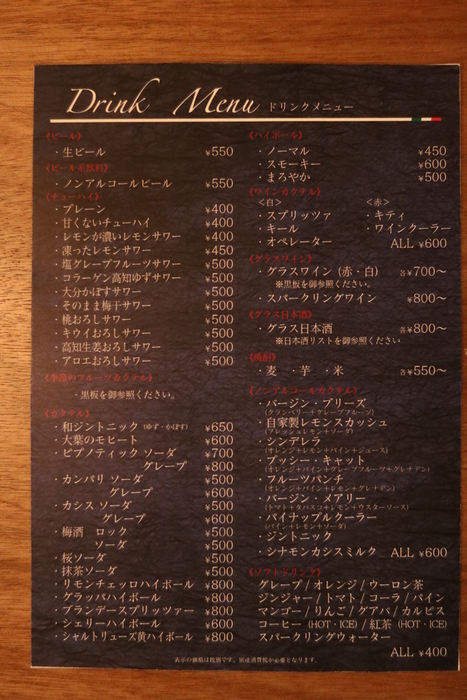 Drink Menu ドリンクメニュー
《ビール》
・生ビール ¥550
《ビール系飲料》
・ノンアルコールビール ¥550
《チューハイ》
・プレーン ¥400
・甘くないチューハイ ¥400
・レモンが濃いレモンサワー ¥400
・凍ったレモンサワー ¥450
・塩グレープフルーツサワー ¥500
・コラーゲン高知ゆずサワー ¥500
・大分かぼすサワー ¥500
・そのまま梅干サワー ¥500
・桃おろしサワー ¥500
・キウイおろしサワー ¥500
・高知生姜おろしサワー ¥500
・アロエおろしサワー ¥500
《季節のフルーツカクテル》
・黒板を御参照ください。
《カクテル》
・和ジントニック (ゆず・かぼす) ¥650
・大葉のモヒート ¥600
・ピプノティック ソーダ ¥700
グレープ ¥800
・カンパリ ソーダ ¥500
グレープ ¥600
・カシス ソーダ ¥500
グレープ ¥600
・梅酒 ロック ¥500
ソーダ ¥500
・桜ソーダ ¥500
・抹茶ソーダ ¥500
・リモンチェッロハイボール ¥800
・グラッパハイボール ¥800
・ブランデースプリッツァー ¥800
・シェリーハイボール ¥600
・シャルトリューズ黄ハイボール ¥800
《ハイボール》
・ノーマル ¥450
・スモーキー ¥600
・まろやか ¥500
《ワインカクテル》
<白> <赤>
・スプリッツァ ・キティ
・キール ・ワインクーラー
・オペレーター ALL ¥600
《グラスワイン》
・グラスワイン (赤・白) 各¥700〜
※黒板を御参照ください。
・スパークリングワイン ¥800〜
《グラス日本酒》
・グラス日本酒 各¥800〜
※日本酒リストを御参照ください
《焼酎》
・麦 ・芋 ・米 各¥550〜
《ノンアルコールカクテル》
・バージン・ブリーズ
(クランベリー+グレープフルーツ)
・自家製レモンスカッシュ
(フレッシュレモン+ソーダ)
・シンデレラ
(オレンジ+レモン+パインジュース)
・プッシー・キャット
(オレンジ+パイン+グレープフルーツ+グレナデン)
・フルーツパンチ
(オレンジ+パイン+レモン+グレナデン)
・バージン・メアリー
(トマト+タバスコ+レモン+ウスターソース)
・パイナップルクーラー
(パイン+レモン+ソーダ)
・ジントニック
・シナモンカシスミルク ALL ¥600
《ソフトドリンク》
グレープ / オレンジ / ウーロン茶
ジンジャー / トマト / コーラ / パイン
マンゴー / りんご / グアバ / カルピス
コーヒー (HOT・ICE) / 紅茶 (HOT・ICE)
スパークリングウォーター
ALL / ¥400
表示の価格は税別です。別途消費税が必要となります。